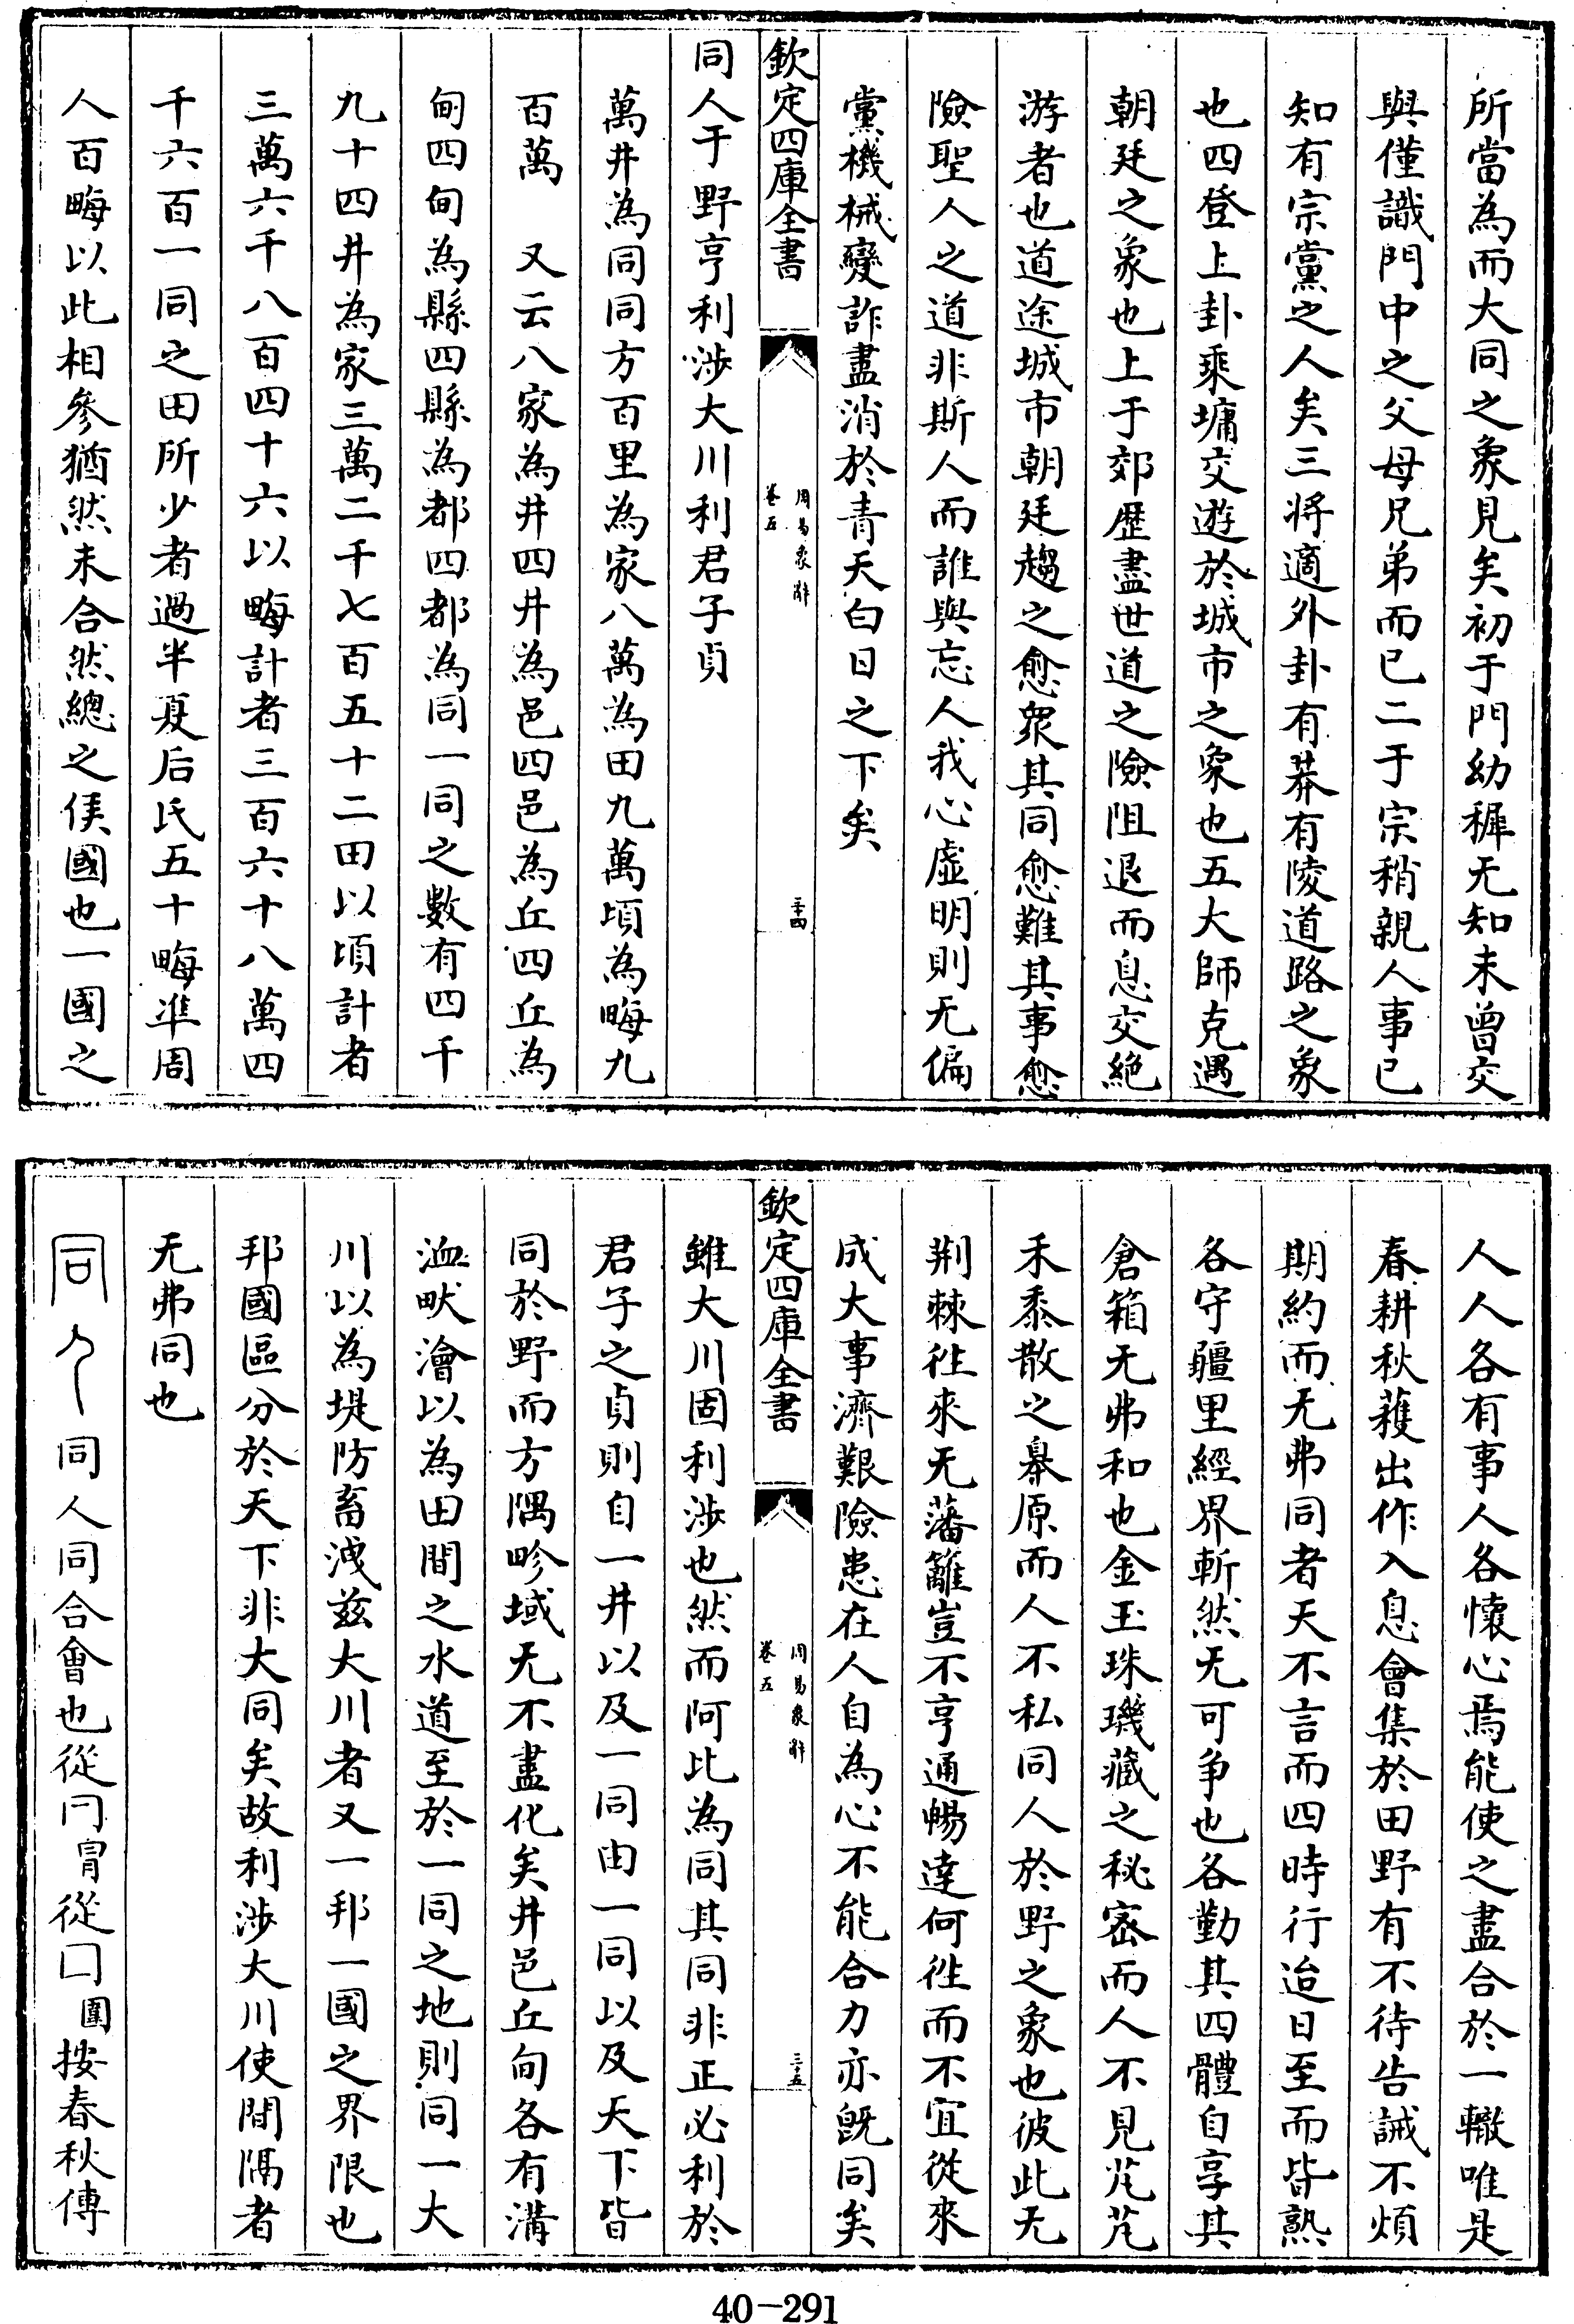 所當為而大同之象見矣初于門幼穉无知未曾交
與僅識門中之父母兄弟而已二于宗稍親人事已
知有宗黨之人矣三將適外卦有莽有陵道路之象
也四登上卦乘墉交遊於城市之象也五大師克遇
朝廷之象也上于郊歷盡世道之險阻退而息交絶
游者也道途城市朝廷趨之愈衆其同愈難其事愈
險聖人之道非斯人而誰與忘人我心虛明則无偏
黨機械變詐盡消於青天白日之下矣
欽定四庫全書
周易象辭
卷五
三十四
同人于野亨利涉大川利君子貞
萬井為同同方百里為家八萬為田九萬頃為畮九
百萬 又云八家為井四井為邑四邑為丘四丘為
甸四甸為縣四縣為都四都為同一同之數有四千
九十四井為家三萬二千七百五十二田以頃計者
三萬六千八百四十六以畮計者三百六十八萬四
千六百一同之田所少者過半夏后氏五十畮準周
人百畮以此相參猶然未合然總之侯國也一國之
人人各有事人各懷心焉能使之盡合於一轍唯是
春耕秋穫出作入息會集於田野有不待告誡不煩
期約而无弗同者天不言而四時行迨日至而皆熟
各守疆里經界斬然无可爭也各勤其四體自享其
倉箱无弗和也金玉珠璣藏之秘宻而人不見芃芃
禾黍散之皋原而人不私同人於野之象也彼此无
荆棘徃來无藩籬豈不亨通暢達何徃而不宜從來
成大事濟艱險患在人自為心不能合力亦既同矣
欽定四庫全書
周易象辭
卷五
三十五
雖大川固利涉也然而阿比為同其同非正必利於
君子之貞則自一井以及一同由一同以及天下皆
同於野而方隅畛域无不盡化矣井邑丘甸各有溝
洫畎澮以為田間之水道至於一同之地則同一大
川以為堤防畜洩兹大川者又一邦一國之界限也
邦國區分於天下非大同矣故利涉大川使間隔者
无弗同也
同人 同人同合會也從冃冐從囗圍按春秋傳
40-291